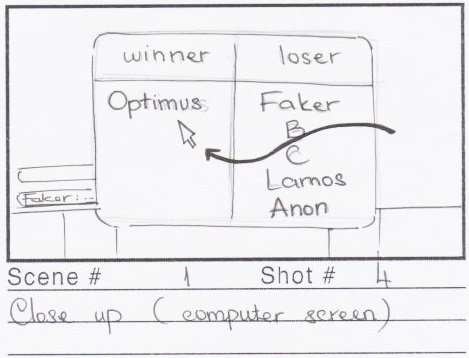 winner loser
Optimus Faker
B
C
Lamos
Anon
Faker:...
Scene # 1 Shot # 4
Close up (computer screen)